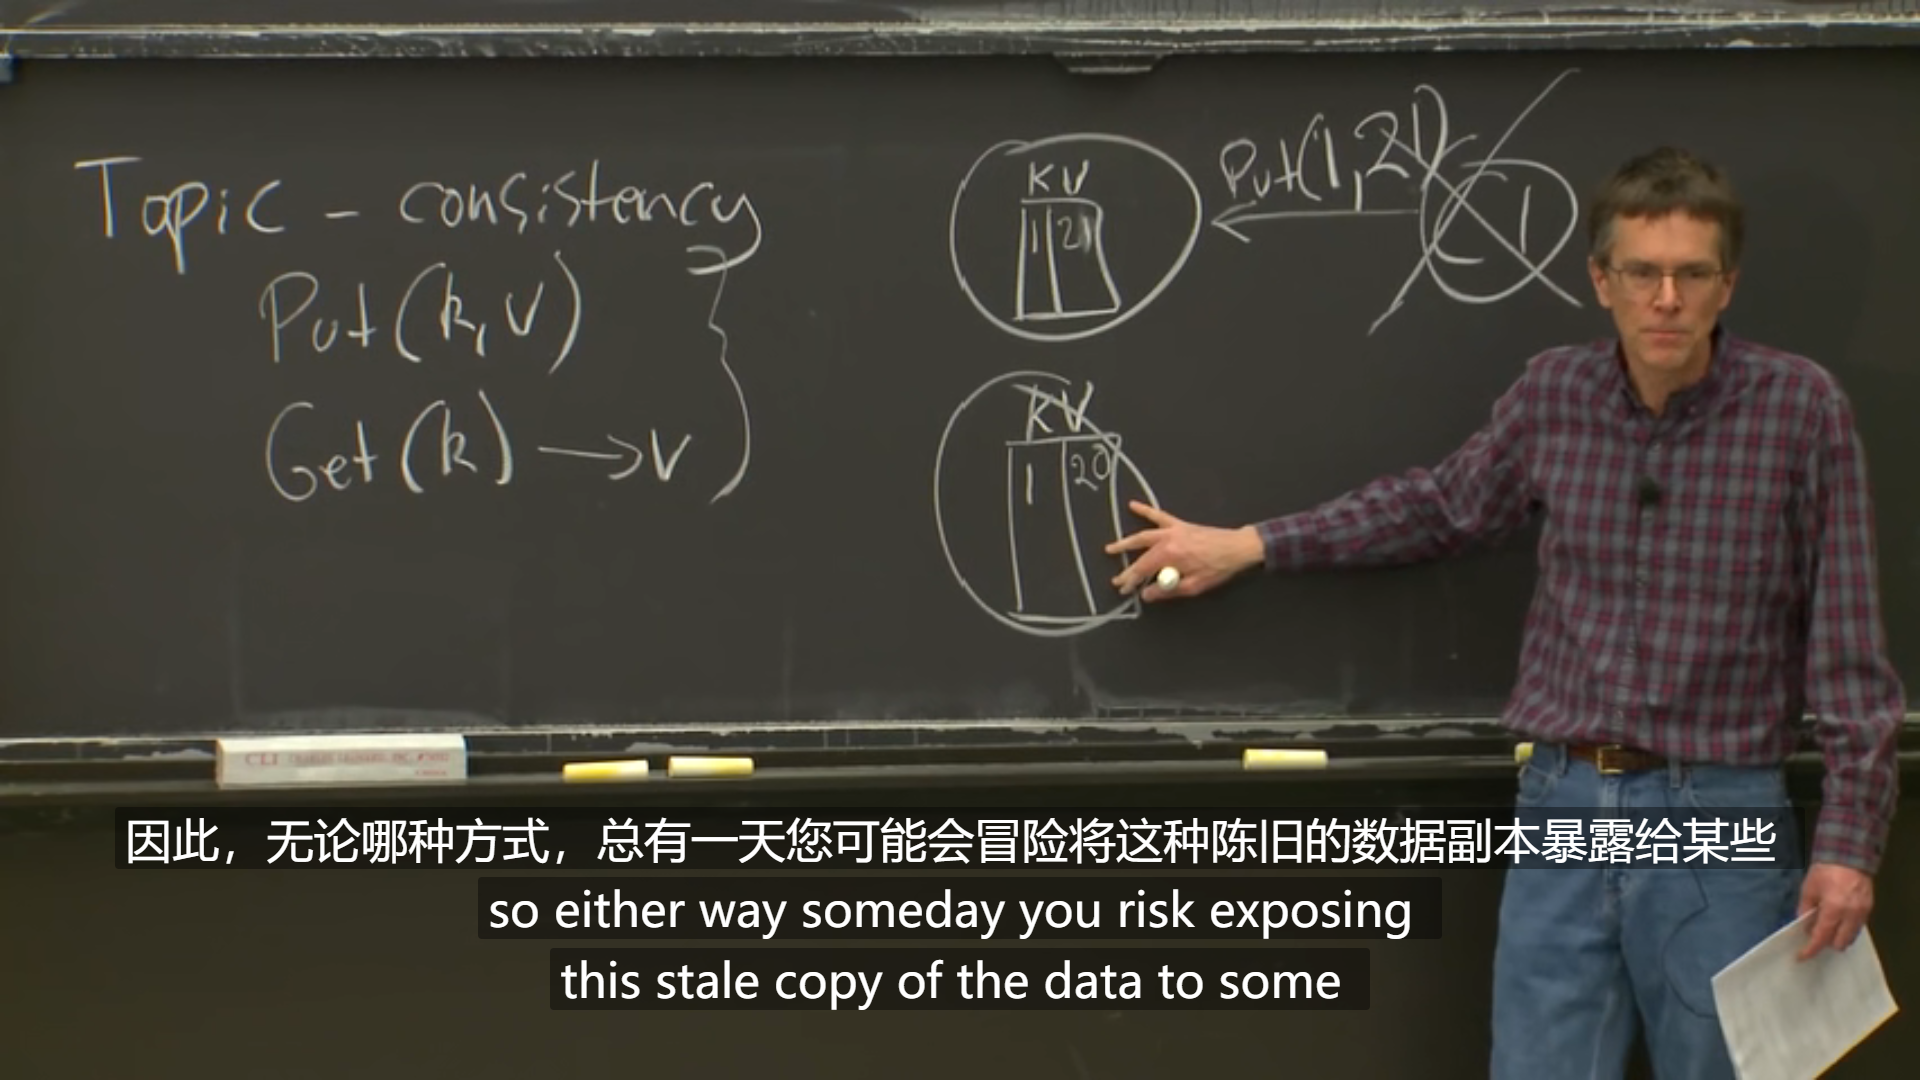 Topic - consistency
Put(k,v)
Get(k) → v
K V
1 21
Put(1,21)
C1
K V
1 20
CLI
因此，无论哪种方式，总有一天您可能会冒险将这种陈旧的数据副本暴露给某些
so either way someday you risk exposing
this stale copy of the data to some